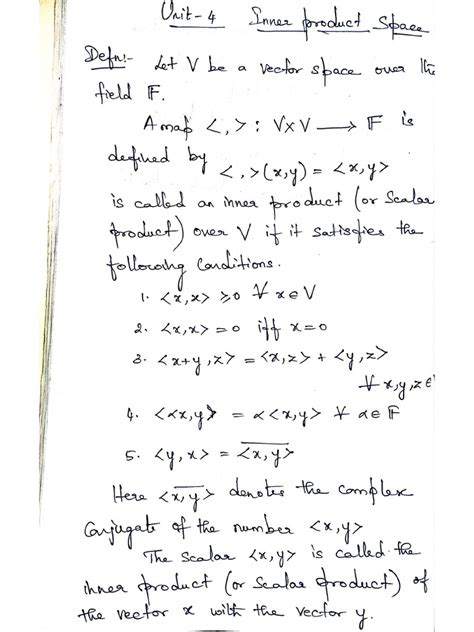 Unit-4 Inner product Space
Defn:- Let V be a vector space over the
field F.
A map < , > : V×V ⟶ F is
defined by < , >(x,y) = <x,y>
is called an inner product (or Scalar
product) over V if it satisfies the
following Conditions.
1. <x,x> ≥0 ∀ x∈V
2. <x,x> =0 iff x=0
3. <x+y,z> = <x,z> + <y,z>
∀ x,y,z ∈
4. <αx,y> = α<x,y> ∀ α∈F
5. <y,x> = \overline{<x,y>}
Here <\overline{x,y}> denotes the complex
Conjugate of the number <x,y>
The Scalar <x,y> is called the
inner product (or Scalar product) of
the vector x with the vector y.